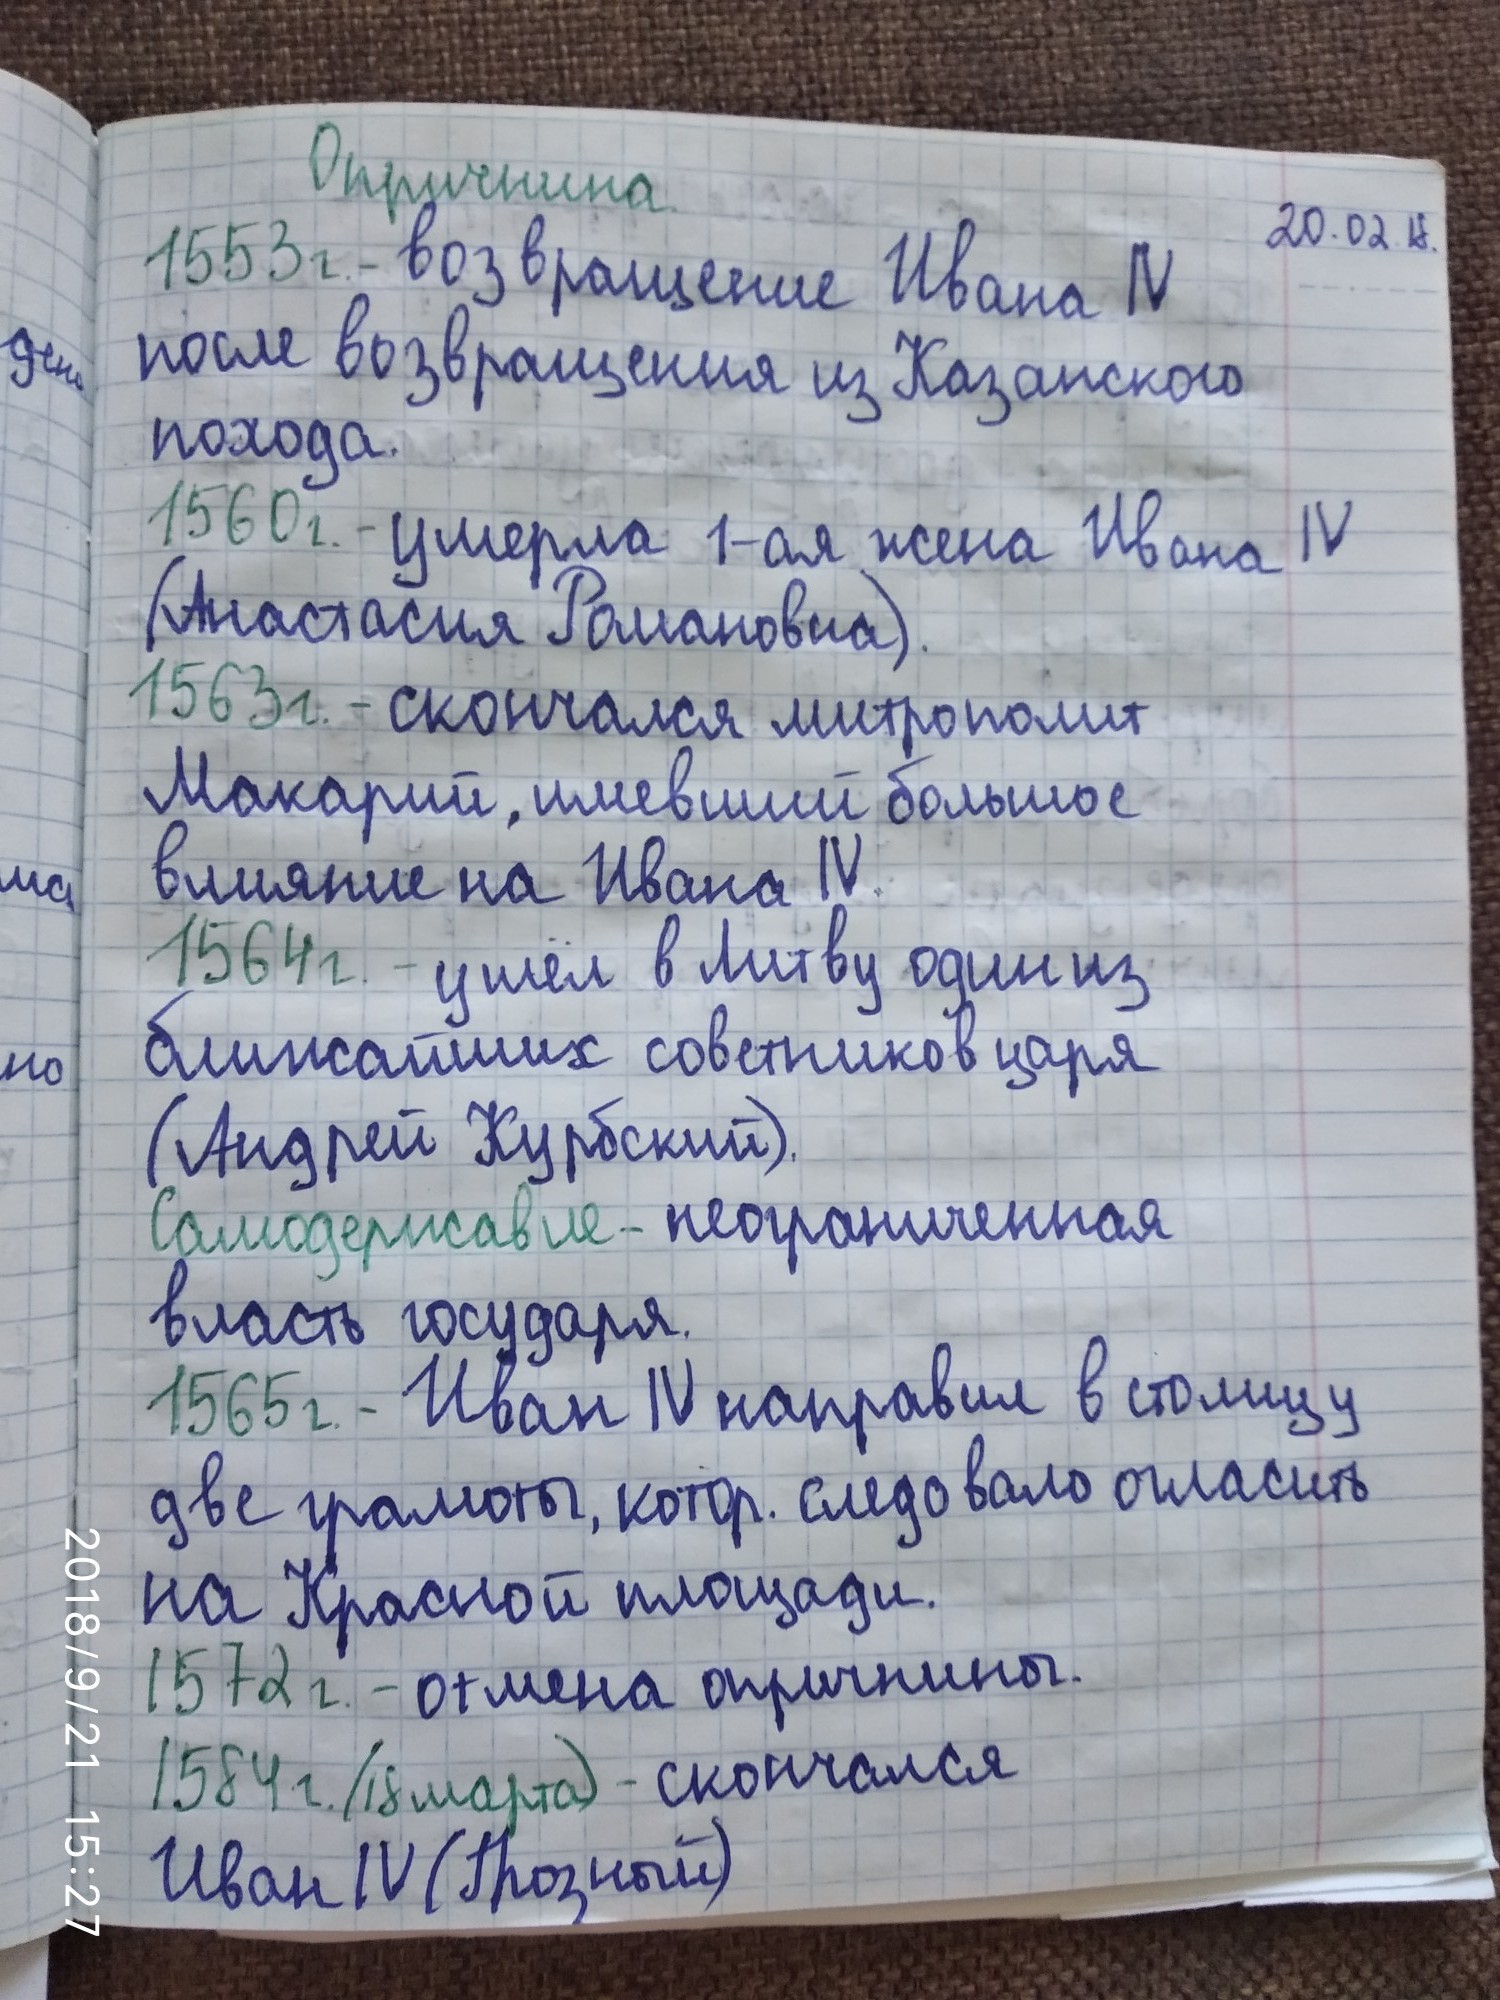 Опричнина.
20.02.18.
1553г. - возвращение Ивана IV
после возвращения из Казанского
похода.
1560г. - умерла 1-ая жена Ивана IV
(Анастасия Романовна).
1563г. - скончался митрополит
Макарий, имевший большое
влияние на Ивана IV.
1564г. - ушёл в Литву один из
ближайших советников царя
(Андрей Курбский).
Самодержавие - неограниченная
власть государя.
1565г. - Иван IV направил в столицу
две грамоты, котор. следовало огласить
на Красной площади.
1572г. - отмена опричнины.
1584г. (18 марта) - скончался
Иван IV (Грозный)
но
2018/9/21 15:27